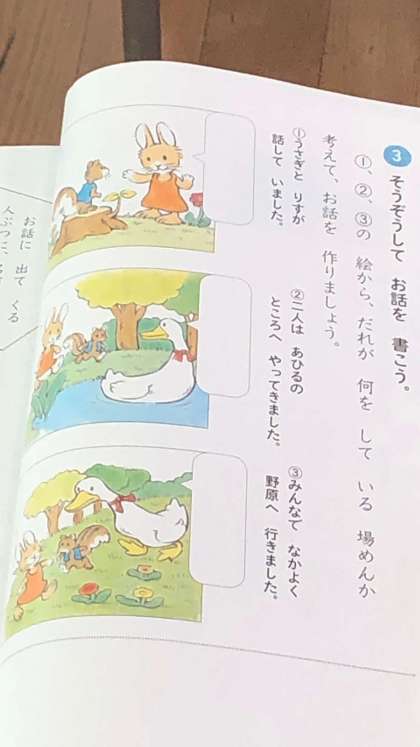 3 そうぞうして お話を 書こう。
①、②、③の 絵から、だれが 何を して いる 場めんか
考えて、お話を 作りましょう。
①うさぎと りすが
話して いました。
②二人は あひるの
ところへ やってきました。
③みんなで なかよく
野原へ 行きました。
お話に 出て くる
人ぶつに、